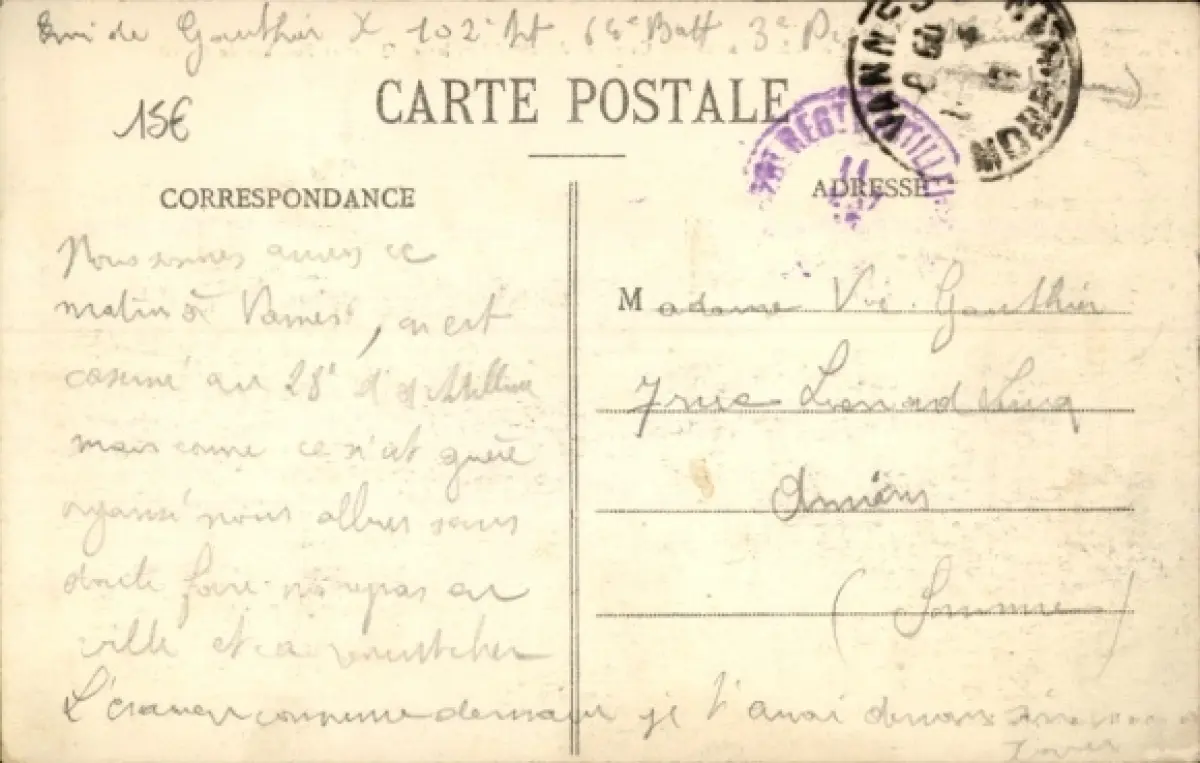 Envoi de Gauthier X. 102e Art 64e Batt 3e
15€
CARTE POSTALE
VANNES MORBIHAN
28e REGT D'ARTILLERIE
CORRESPONDANCE
ADRESSE
Nous sommes arrivés ce
matin à Vannes, on est
caserné au 28e d'artillerie
mais comme ce n'est guère
organisé nous allons sans
doute faire nos repas en
ville et
L'examen commence demain je l'aurai
Madame Vve Gauthier
7 rue
Amiens
(Somme)